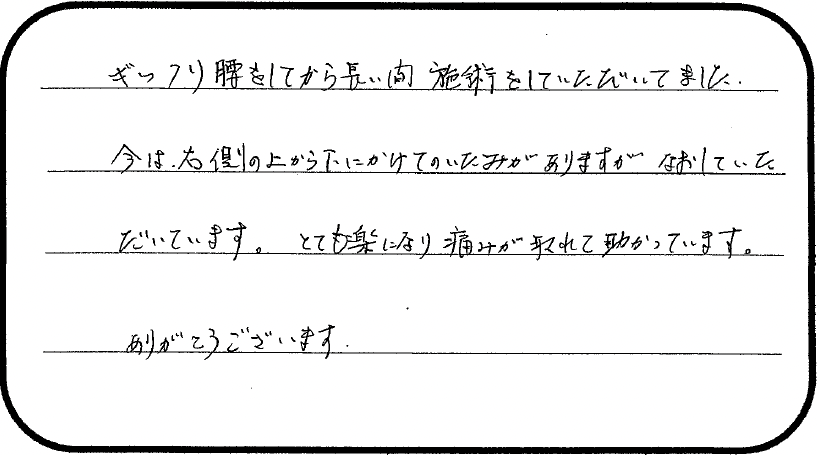 ギックリ腰をしてから長い間 施術をしていただいてました.
今は、右側の上から下にかけてのいたみがありますが なおしていた
だいています。 とても楽になり 痛みが取れて助かっています。
ありがとうございます.